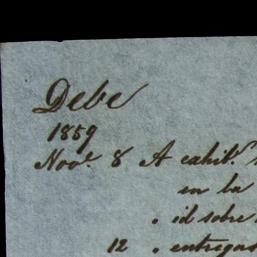 Debe
1889
Nov.e 8 A cahit.
en la
" id sobre
12 " entregas